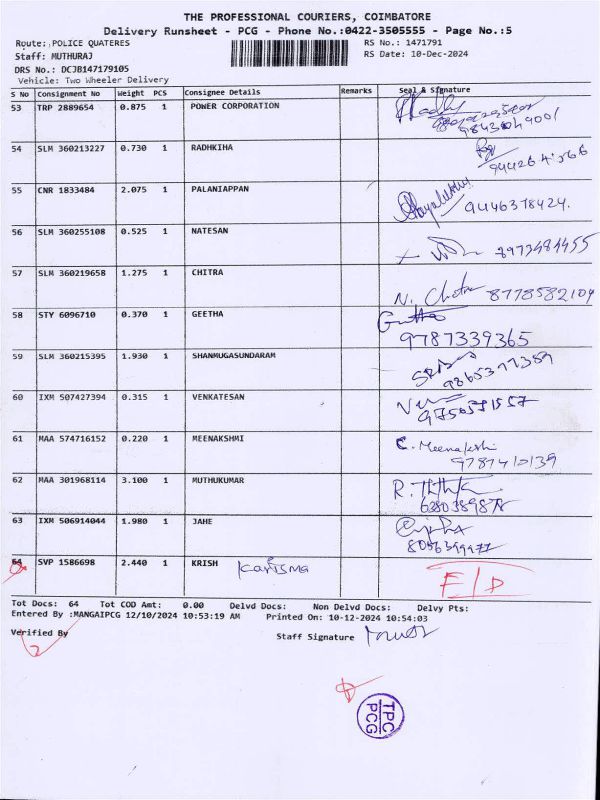 THE PROFESSIONAL COURIERS, COIMBATORE
Delivery Runsheet - PCG - Phone No.:0422-3505555 - Page No.:5
Route: POLICE QUATERES RS No.: 1471791
Staff: MUTHURAJ RS Date: 10-Dec-2024
DRS No.: DCJB147179105
Vehicle: Two Wheeler Delivery
S No Consignment No Weight PCS Consignee Details Remarks Seal & Signature
53 TRP 2889654 0.875 1 POWER CORPORATION
54 SLM 360213227 0.730 1 RADHKIHA
55 CNR 1833484 2.075 1 PALANIAPPAN
9446378424.
56 SLM 360255108 0.525 1 NATESAN
8973484455
57 SLM 360219658 1.275 1 CHITRA
N. Chitra 8778582104
58 STY 6096710 0.370 1 GEETHA
Geetha
9787339365
59 SLM 360215395 1.930 1 SHANMUGASUNDARAM
60 IXM 507427394 0.315 1 VENKATESAN
61 MAA 574716152 0.220 1 MEENAKSHMI
C. Meenakshi
9787410139
62 MAA 301968114 3.100 1 MUTHUKUMAR
6380389878
63 IXM 506914044 1.980 1 JAHE
64 SVP 1586698 2.440 1 KRISH Karisma
F/D
Tot Docs: 64 Tot COD Amt: 0.00 Delvd Docs: Non Delvd Docs: Delvy Pts:
Entered By :MANGAIPCG 12/10/2024 10:53:19 AM Printed On: 10-12-2024 10:54:03
Verified By Staff Signature
TPC
PCG